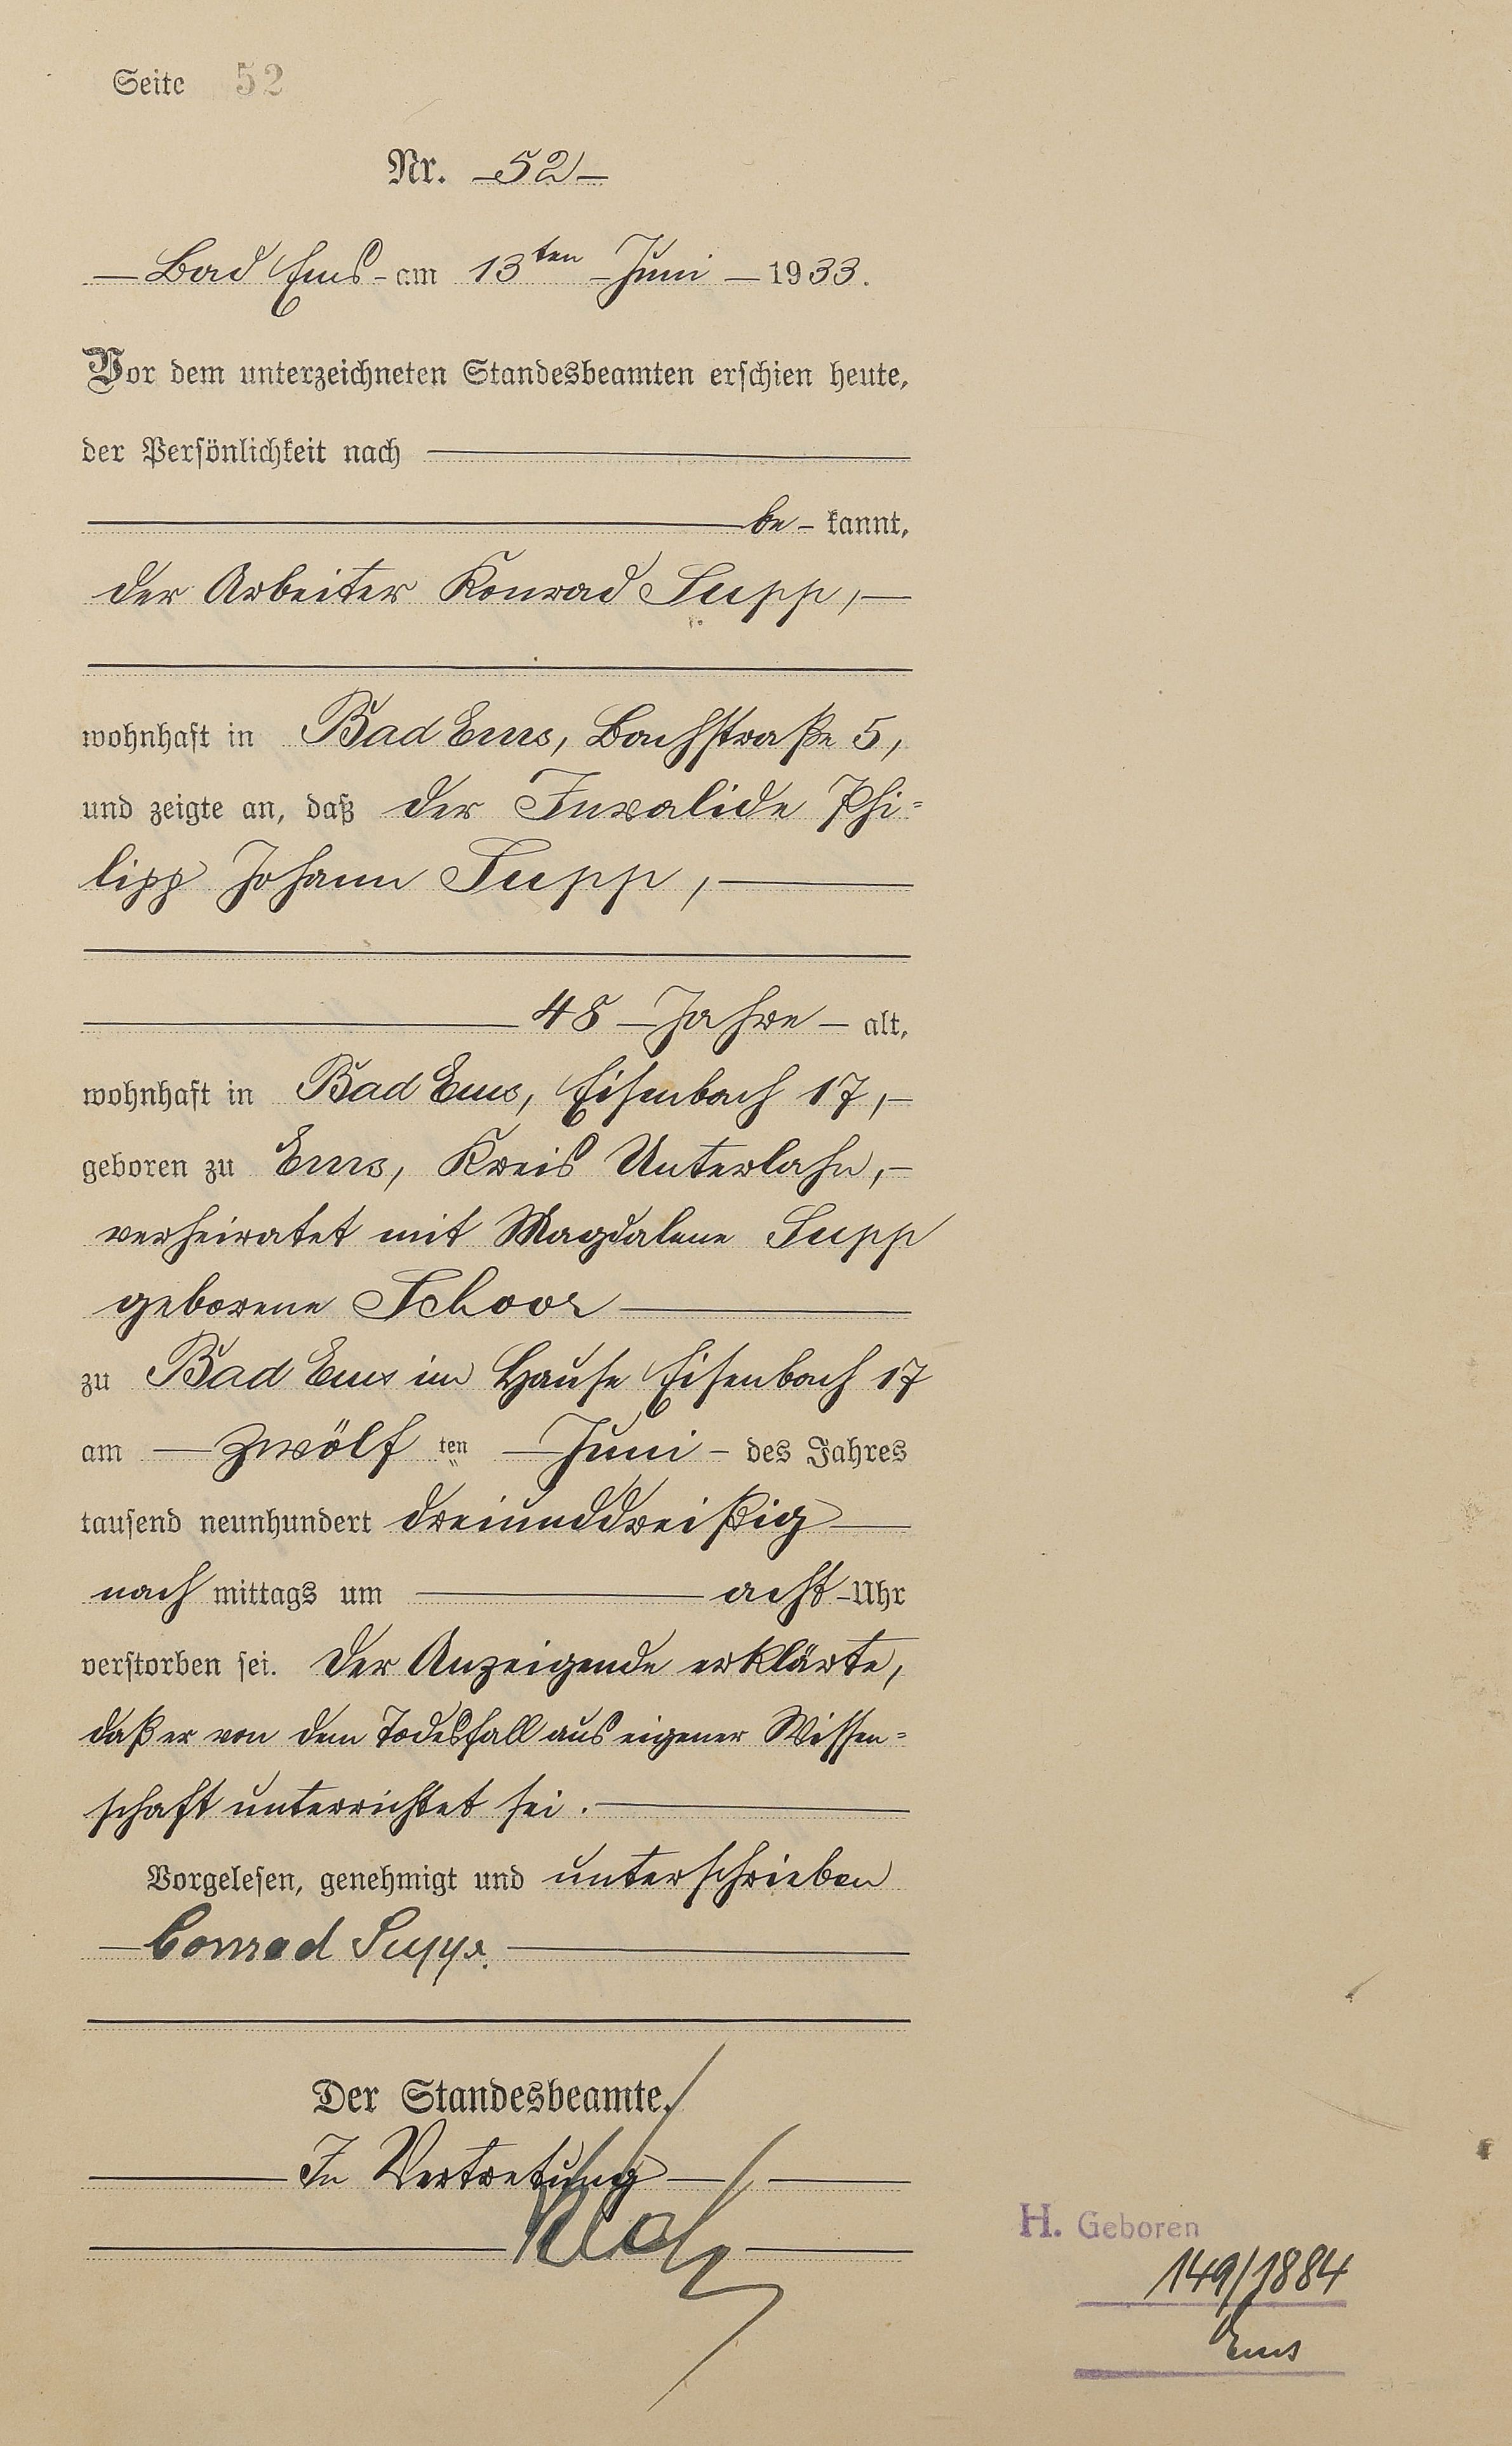 Seite 52
Nr. -52-
- Bad Ems - am 13ten - Juni - 1933.
Vor dem unterzeichneten Standesbeamten erschien heute,
der Persönlichkeit nach
be- kannt,
der Arbeiter Konrad Supp, -
wohnhaft in Bad Ems, Bachstraße 5,
und zeigte an, daß der Invalide Phi=
lipp Johann Supp,
48 - Jahre - alt,
wohnhaft in Bad Ems, Eisenbach 17, -
geboren zu Ems, Kreis Unterlahn, -
verheiratet mit Magdalene Supp
geborene Schoor
zu Bad Ems im Hause Eisenbach 17
am - zwölf ten - Juni - des Jahres
tausend neunhundert dreiunddreißig
nach mittags um acht - Uhr
verstorben sei. Der Anzeigende erklärte,
daß er von dem Todesfall aus eigener Wissen=
schaft unterrichtet sei.
Vorgelesen, genehmigt und unterschrieben
- Conrad Supp.
Der Standesbeamte.
In Vertretung
H. Geboren
149/1884
Ems